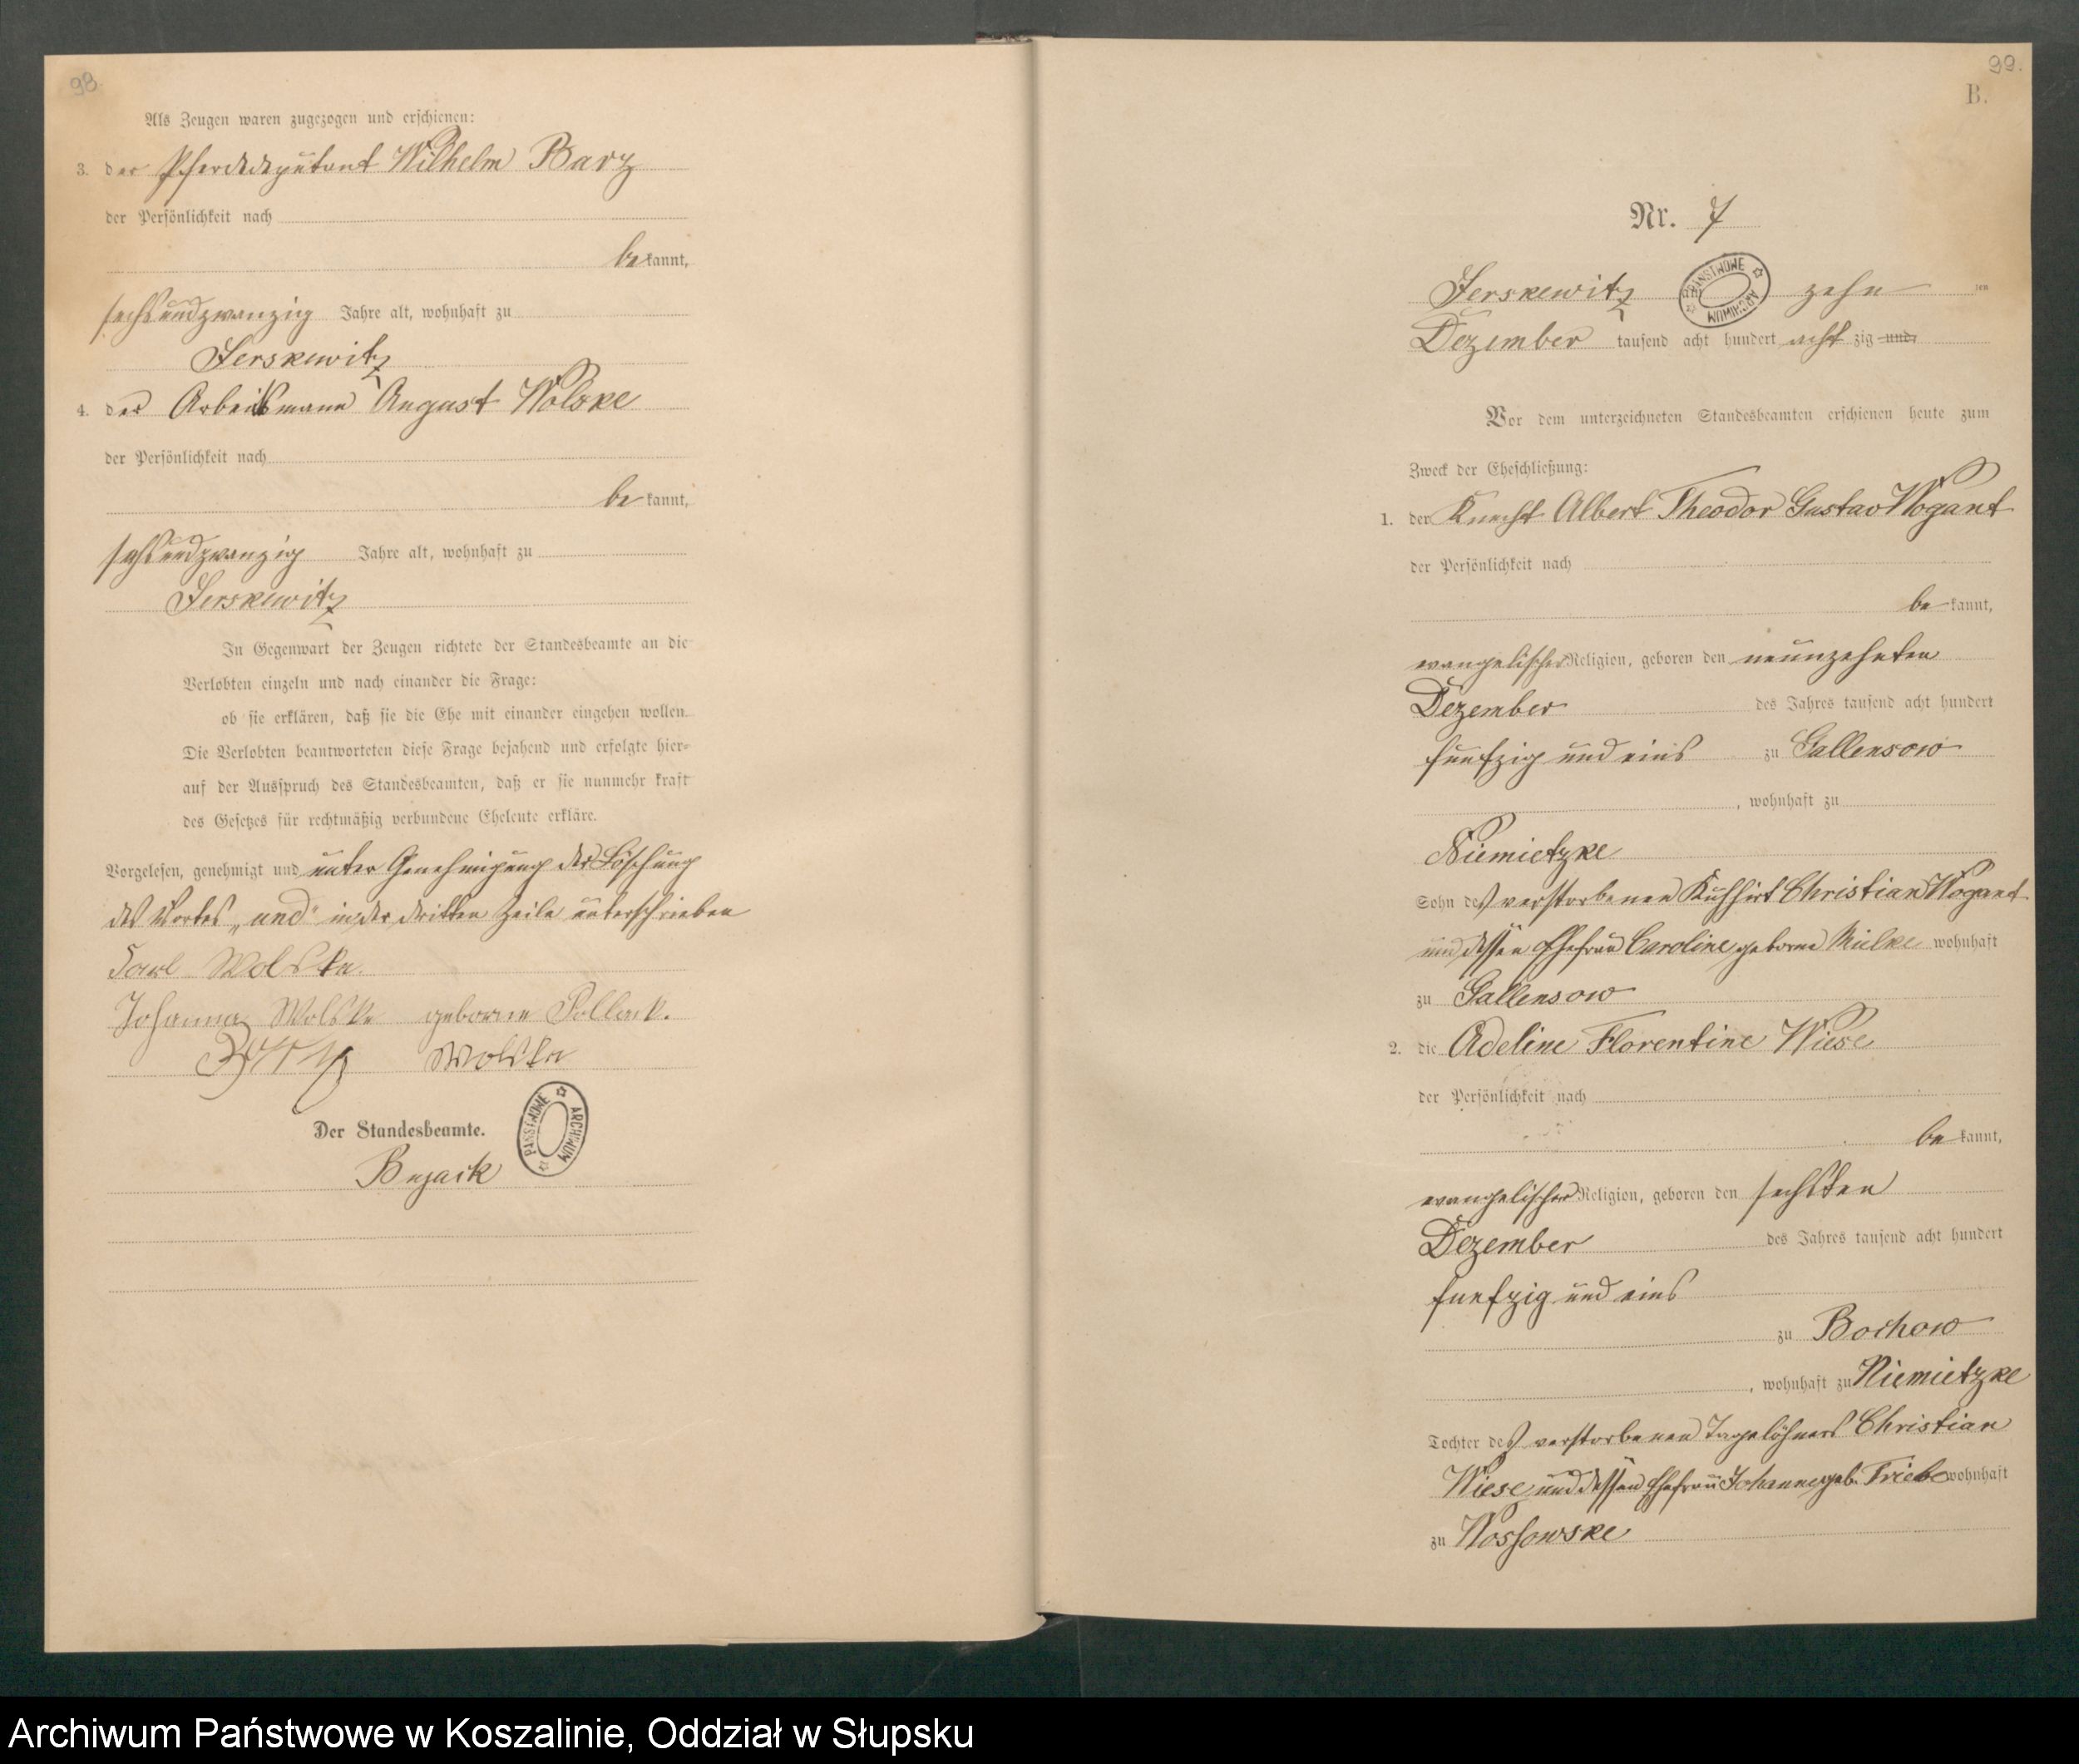 98.
Als Zeugen waren zugezogen und erschienen:
3. der Pferdedeputant Wilhelm Barz
der Persönlichkeit nach
be kannt,
sechsundzwanzig Jahre alt, wohnhaft zu
Jerskewitz
4. der Arbeitsmann August Wolske
der Persönlichkeit nach
be kannt,
sechsundzwanzig Jahre alt, wohnhaft zu
Jerskewitz
In Gegenwart der Zeugen richtete der Standesbeamte an die
Verlobten einzeln und nach einander die Frage:
ob sie erklären, daß sie die Ehe mit einander eingehen wollen.
Die Verlobten beantworteten diese Frage bejahend und erfolgte hier-
auf der Ausspruch des Standesbeamten, daß er sie nunmehr kraft
des Gesetzes für rechtmäßig verbundene Eheleute erkläre.
Vorgelesen, genehmigt und unter Genehmigung der Löschung
des Wortes „und" in der dritten Zeile unterschrieben
Karl Wolske.
Johanna Wolske geborne Pollack.
Barz Wolske
Der Standesbeamte.
PAŃSTWOWE ARCHIWUM
Bujack
99.
B.
Nr. 7
Jerskewitz am zehn ten
PAŃSTWOWE ARCHIWUM
Dezember tausend acht hundert acht zig und
Vor dem unterzeichneten Standesbeamten erschienen heute zum
Zweck der Eheschließung:
1. der Knecht Albert Theodor Gustav Wogant
der Persönlichkeit nach
be kannt,
evangelischer Religion, geboren den neunzehnten
Dezember des Jahres tausend acht hundert
funfzig und eins zu Gallensow
, wohnhaft zu
Niemietzke
Sohn des verstorbenen Kuhhirt Christian Wogant
und dessen Ehefrau Caroline geborne Mielke wohnhaft
zu Gallensow
2. die Adeline Florentine Wiese
der Persönlichkeit nach
be kannt,
evangelischer Religion, geboren den sechsten
Dezember des Jahres tausend acht hundert
funfzig und eins
zu Bochow
, wohnhaft zu Niemietzke
Tochter des verstorbenen Tagelöhners Christian
Wiese und dessen Ehefrau Johanne geb. Triebe wohnhaft
zu Wossowske
Archiwum Państwowe w Koszalinie, Oddział w Słupsku